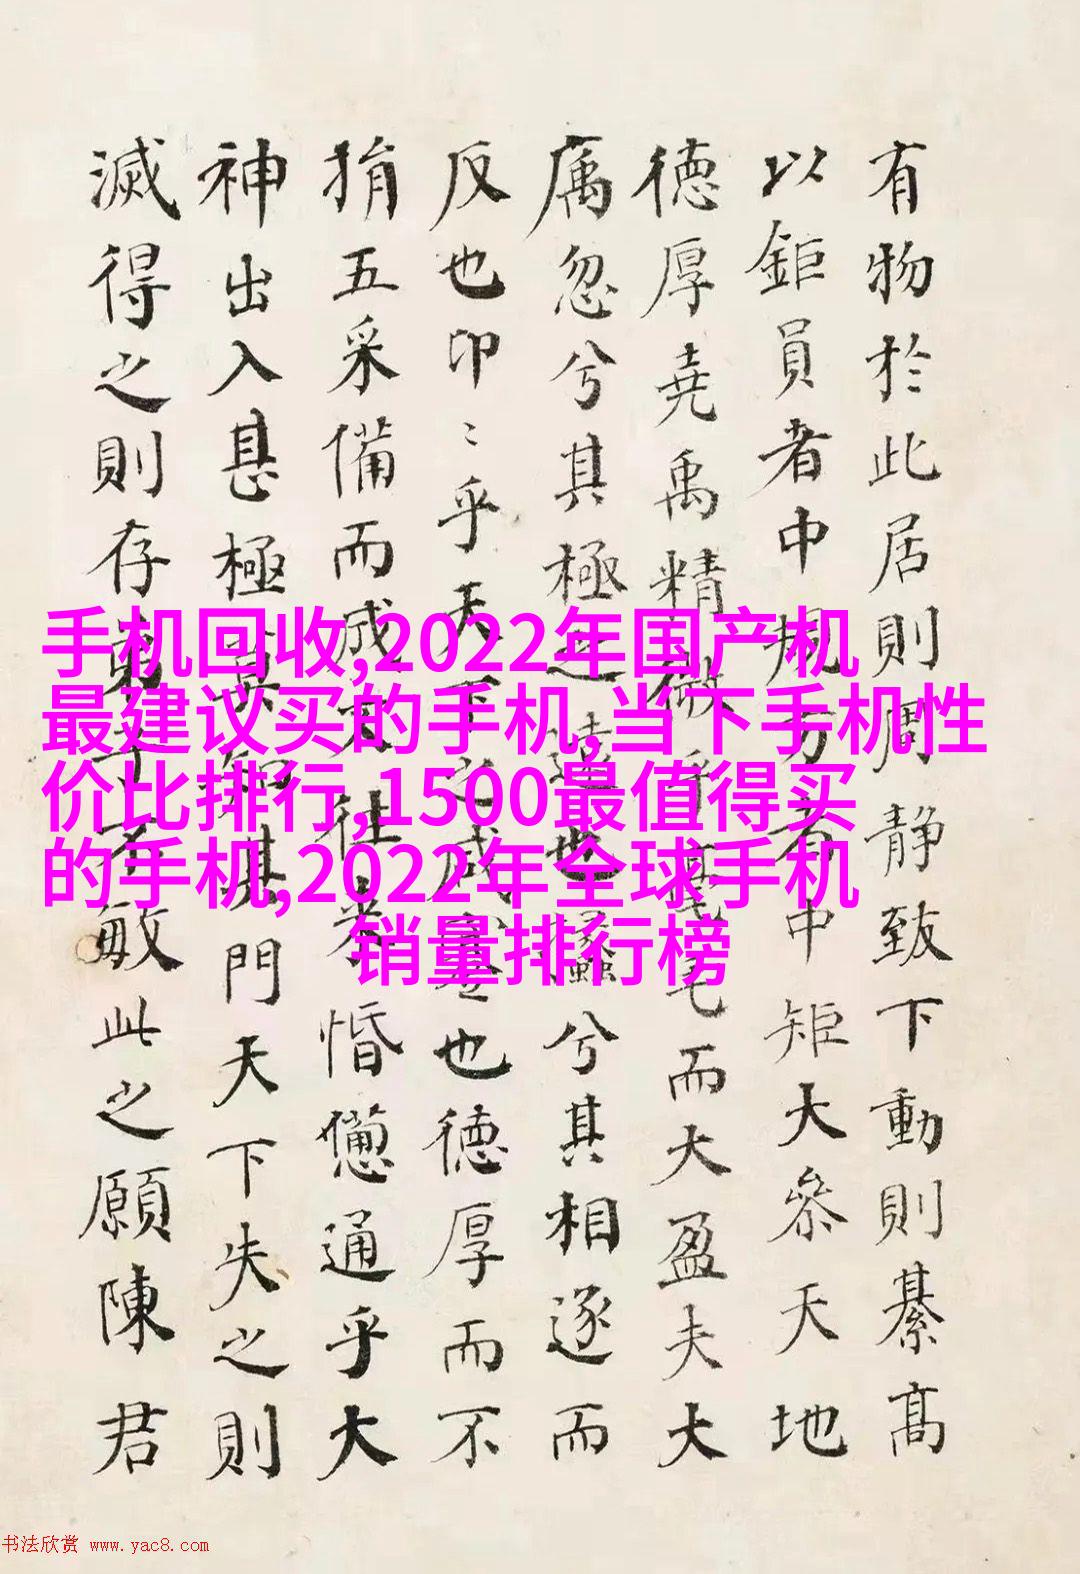 有物於此居則周靜致下動則綦髙
以鉅員者中規方者中矩大叅天地
德厚堯禹精微乎毫毛而大盈夫大
厲忽兮其極之遠也攭兮其相逐而
反也卬〻乎天下之咸蹇也德厚而不
捐五采備而成文往来惛憊通乎大
神出入甚極莫知其門天下失之則
滅得之則存弟子不敏此之願陳君
手机回收,2022年国产机
最建议买的手机,当下手机性
价比排行,1500最值得买
的手机,2022年全球手机
销量排行榜
书法欣赏 www.yac8.com